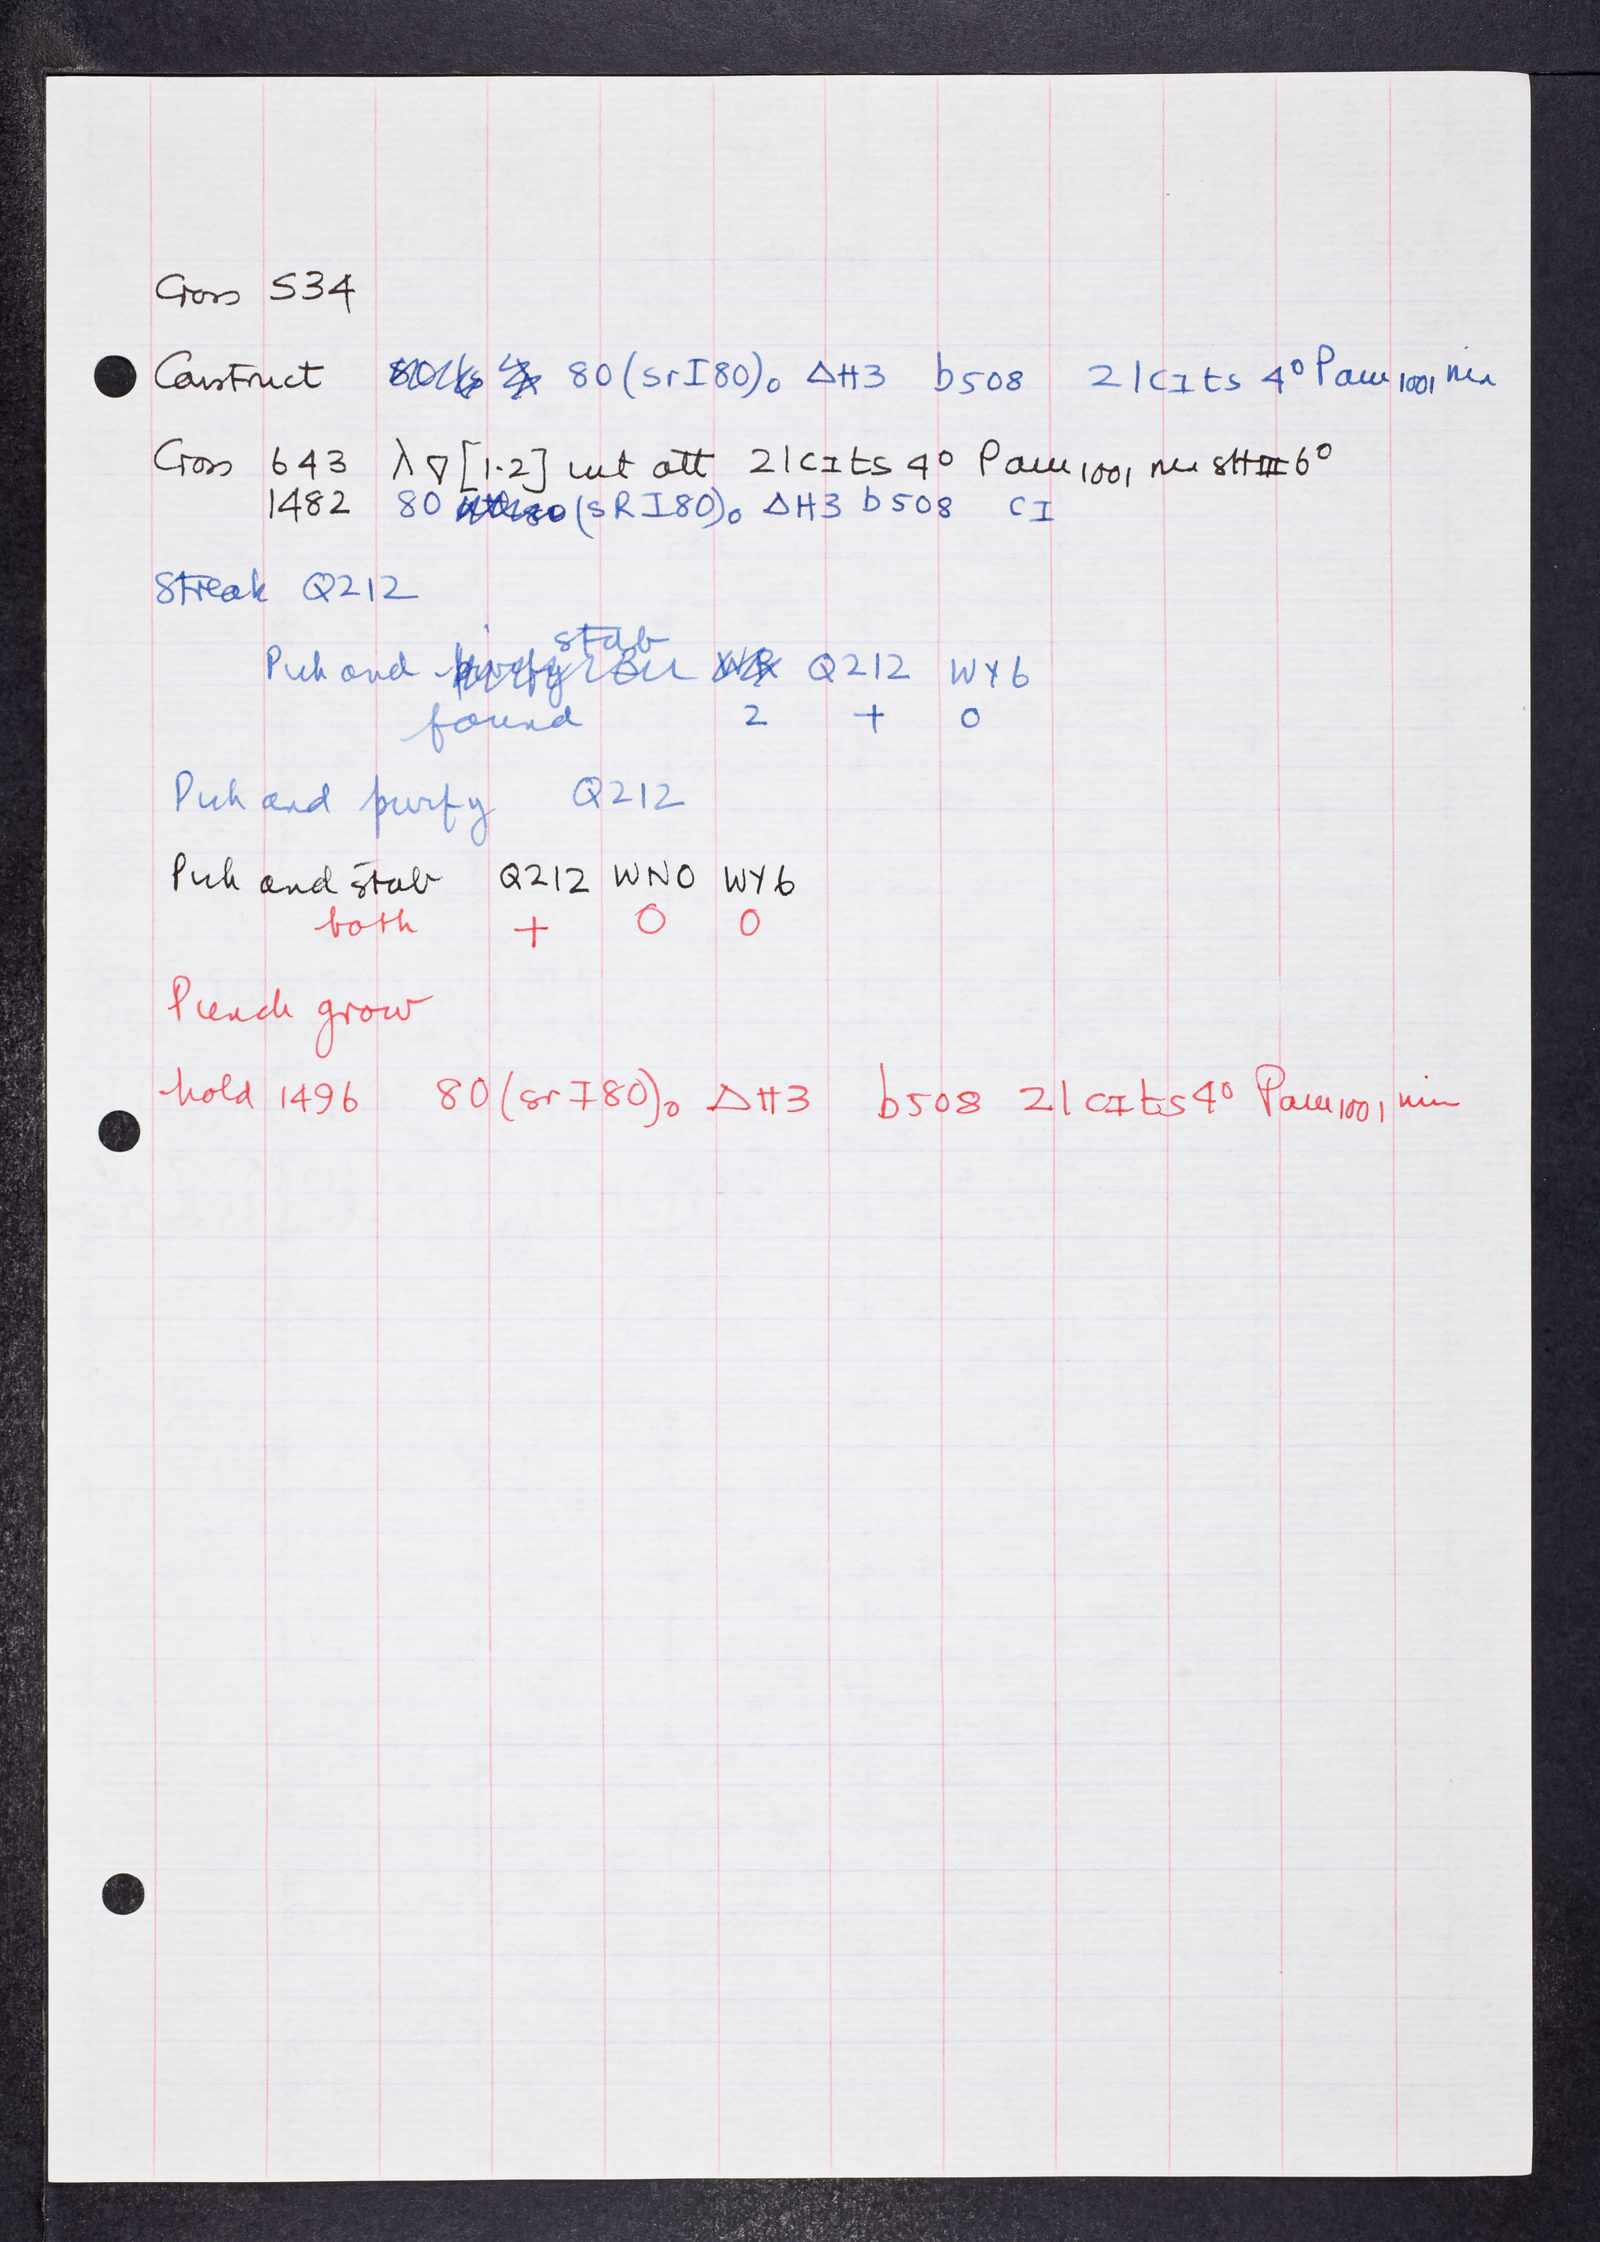 Cross S34
Construct 80(srI80)₀ ΔH3 b508 21cIts 4⁰ Pam₁₀₀₁ nin
Cross 643 λ∇[1·2] int att 21cIts 4⁰ Pam₁₀₀₁ nin sHIII6⁰
1482 80 (sRI80)₀ ΔH3 b508 cI
Streak Q212
Pick and stab Q212 WY6
found 2 + 0
Pick and purify Q212
Pick and stab Q212 WN0 WY6
both + 0 0
Punch grow
hold 1496 80(srI80)₀ ΔH3 b508 21cIts4⁰ Pam₁₀₀₁ nin